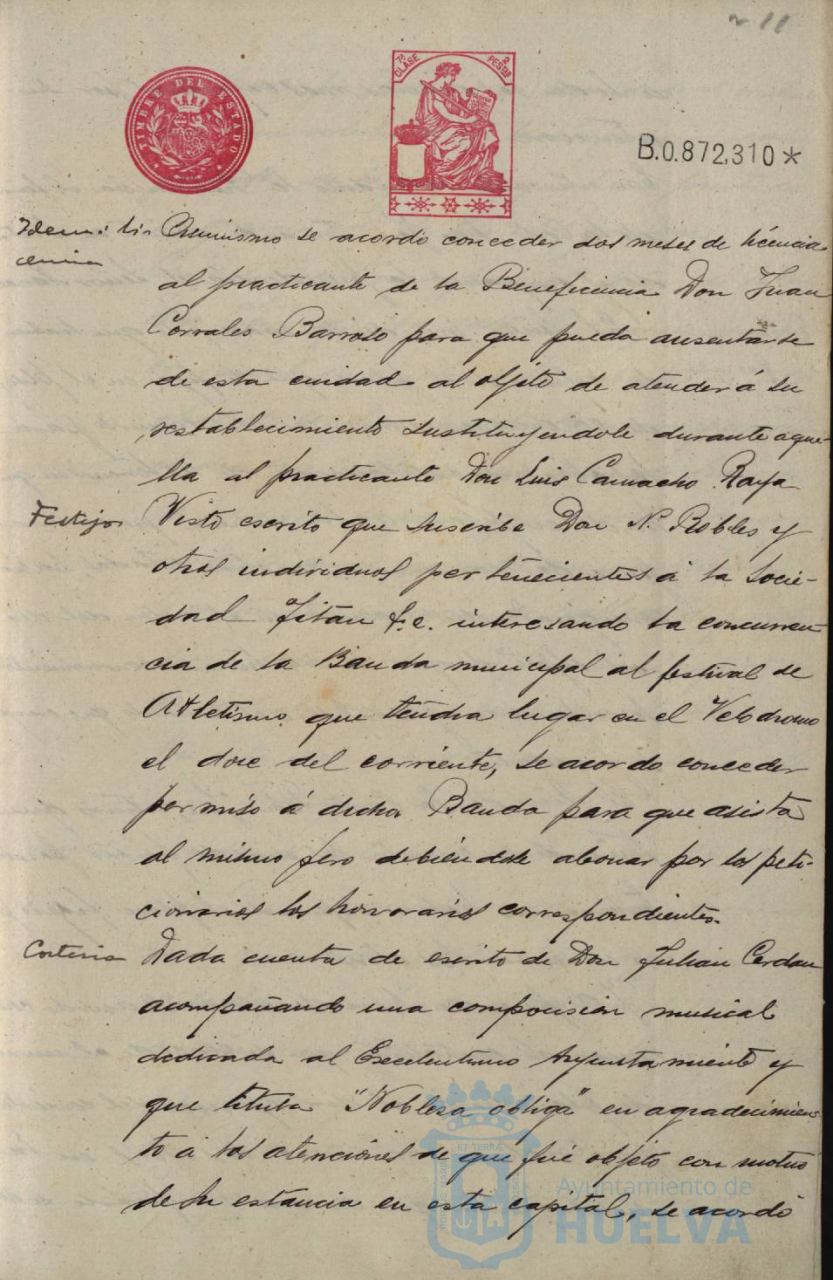 211
TIMBRE DEL ESTADO
7ª CLASE 2 PESTAS
B.0.872,310*
Idem: li-
cencia
Asimismo se acordó conceder dos meses de licencia
al practicante de la Beneficencia Don Juan
Corrales Barroso para que pueda ausentarse
de esta ciudad al objeto de atender á su
restablecimiento sustituyendole durante aque-
lla al practicante Don Luis Camacho Raya
Festejos
Visto escrito que suscribe Don N. Robles y
otros individuos pertenecientes á la Socie-
dad Titan F.C. interesando la concurren-
cia de la Banda municipal al festival de
Atletismo que tendra lugar en el Velodromo
el doce del corriente, se acordo conceder
permiso á dicha Banda para que asista
al mismo pero debiendole abonar por los peti-
cionarios los honorarios correspondientes.
Cortesia
Dada cuenta de escrito de Don Julian Cerdan
acompañando una composición musical
dedicada al Excelentisimo Ayuntamiento y
que titula "Nobleza obliga" en agradecimien-
to á las atenciones de que fué objeto con motivo
de su estancia en esta capital, se acordó
Ayuntamiento de
HUELVA